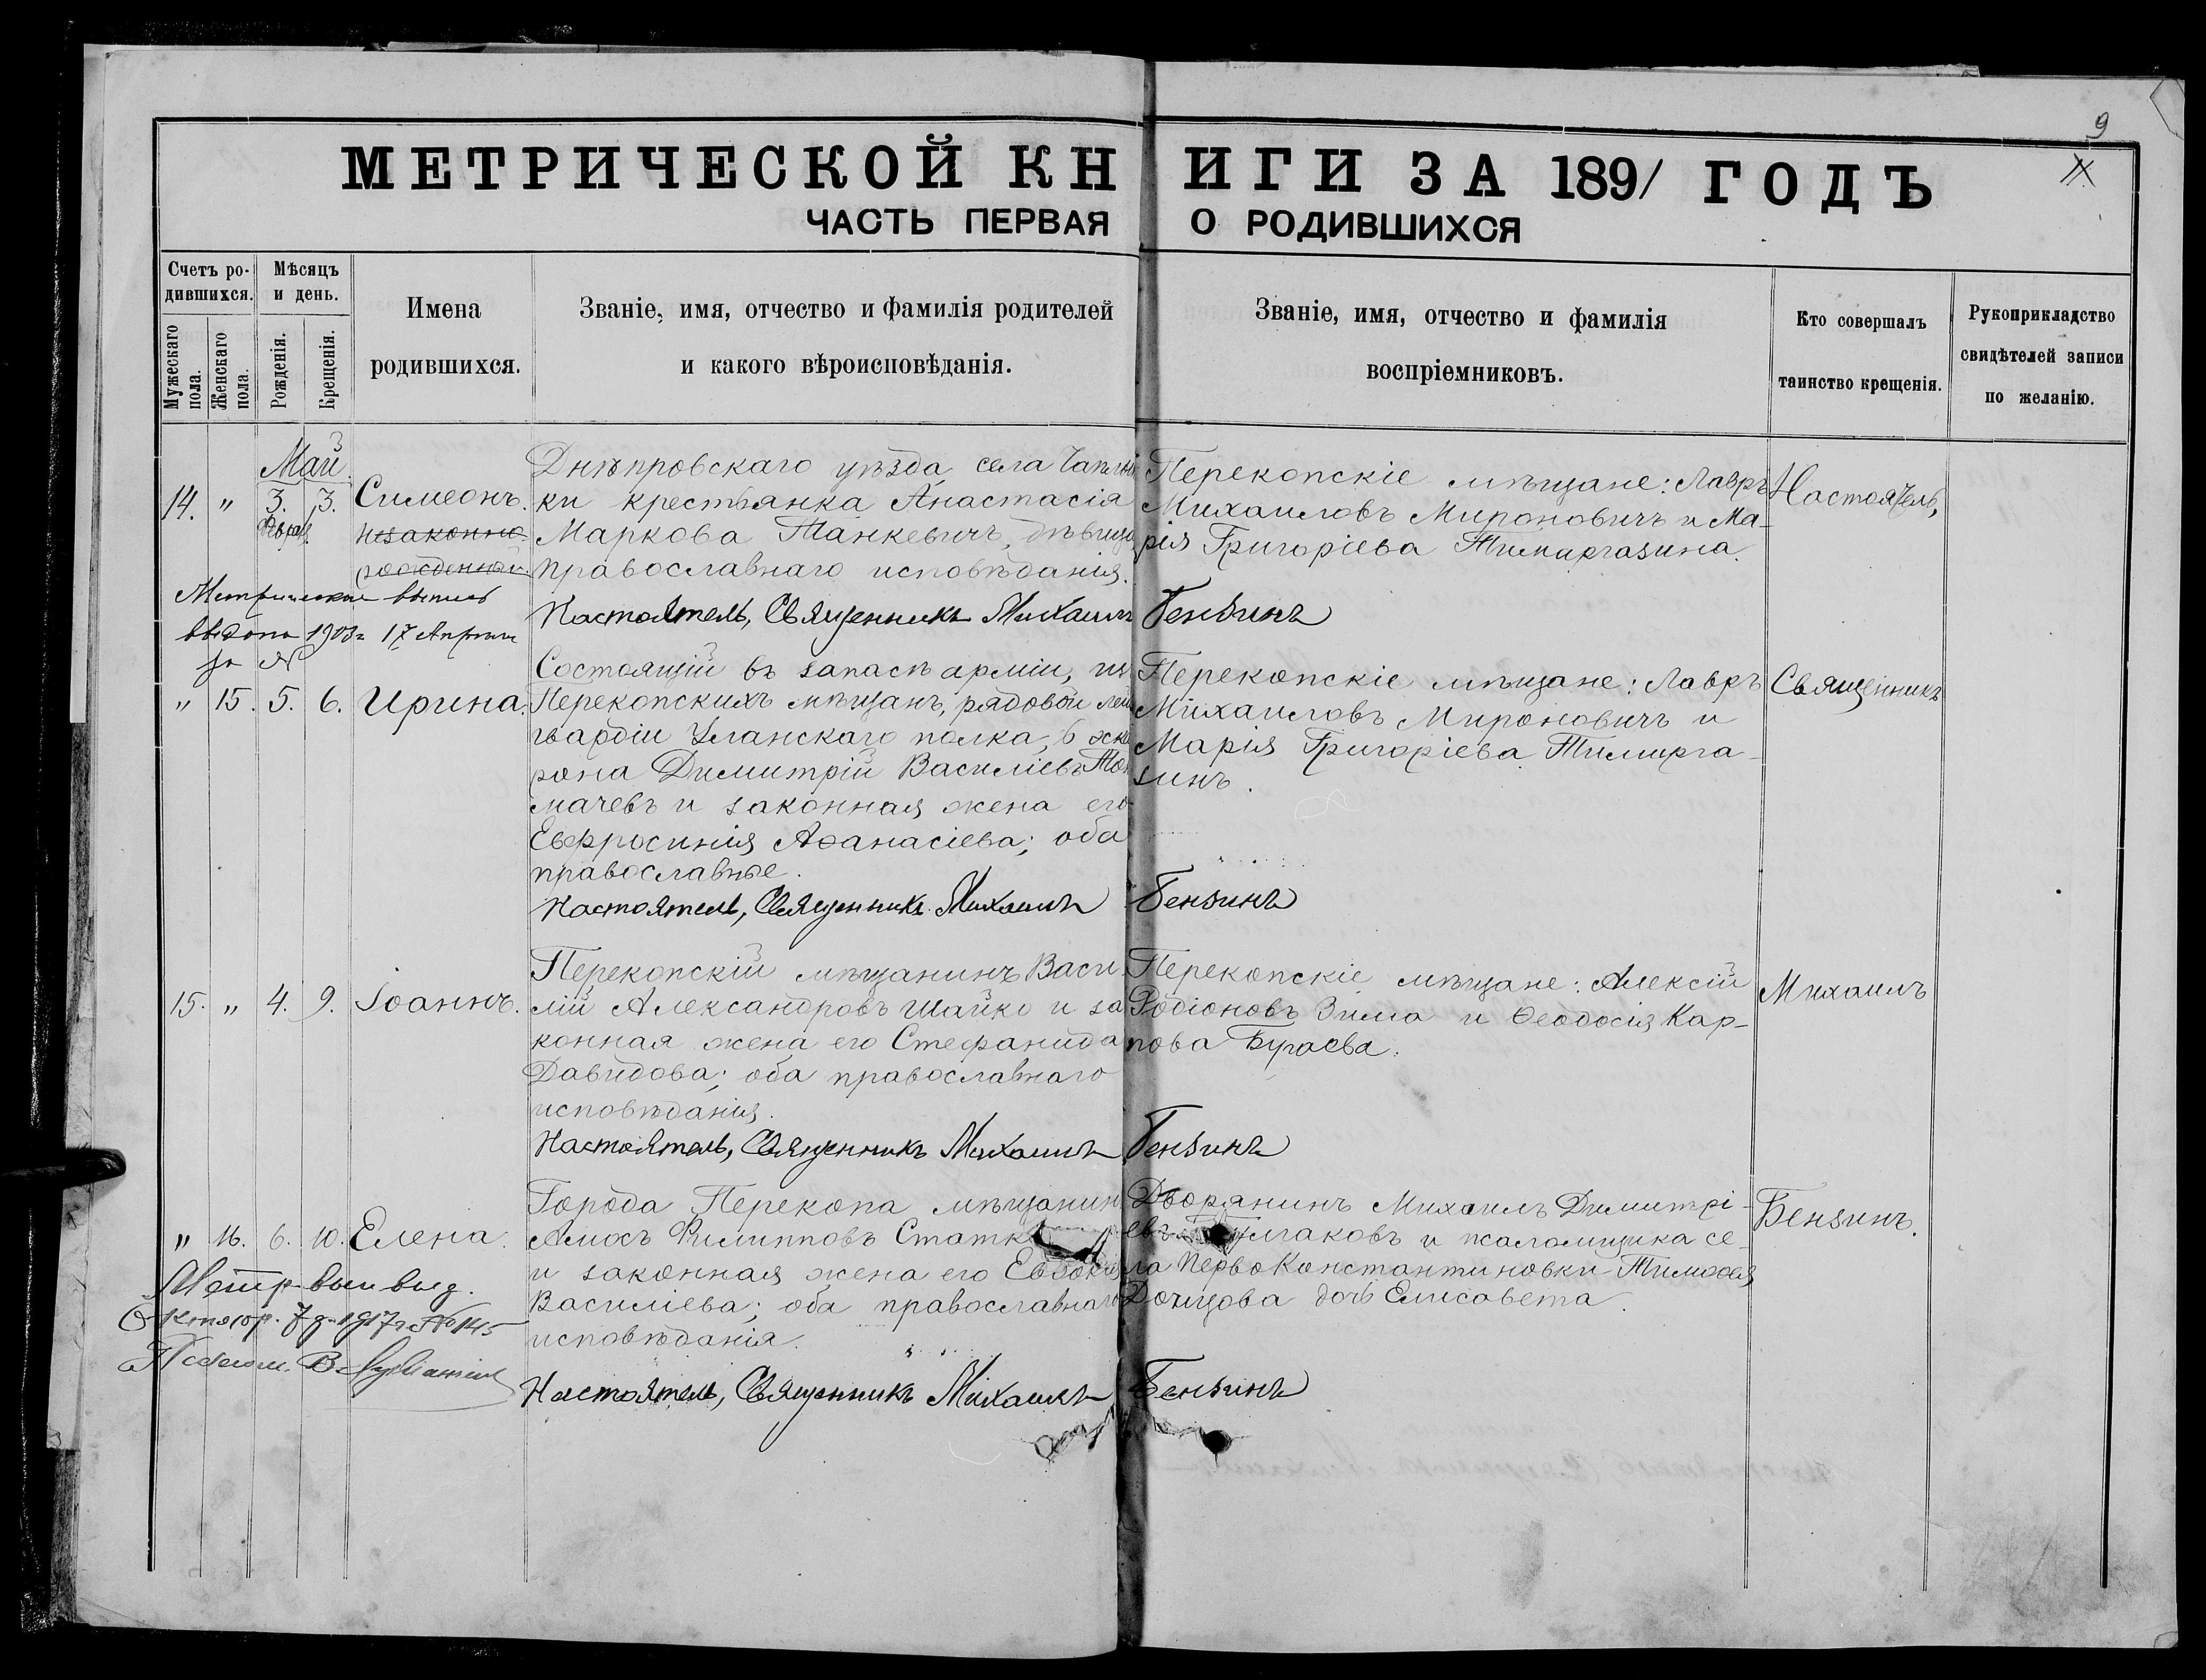 9
МЕТРИЧЕСКОЙ КНИГИ ЗА 1891 ГОДЪ
ЧАСТЬ ПЕРВАЯ О РОДИВШИХСЯ
Счетъ ро-
дившихся.
Мужескаго
пола.
Женскаго
пола.
Мѣсяцъ
и день.
Рожденія.
Крещенія.
Имена
родившихся.
Званіе, имя, отчество и фамилія родителей
и какого вѣроисповѣданія.
Званіе, имя, отчество и фамилія
воспріемниковъ.
Кто совершалъ
таинство крещенія.
Рукоприкладство
свидѣтелей записи
по желанію.
Май
14. " 3. 3. Симеонъ.
незаконно-
рожденный.
Днѣпровскаго уѣзда, села Чаплин
ки крестьянка Анастасія
Маркова Танкевичъ, дѣвица
православнаго исповѣданія.
Перекопскіе мѣщане: Лавръ
Михаиловъ Мироновичъ и Ма-
рія Григоріева Тимиргазина.
Настоятель,
Настоятель, Священникъ Михаилъ Бензинъ
Метрическая выпись
выдана 1903 г. 17 Апрѣля
за №
" 15. 5. 6. Ирина.
Состоящій въ запасѣ арміи, из
Перекопскихъ мѣщанъ, рядовой лей
гвардіи Уланскаго полка, 6 эска
рона Димитрій Василіевъ Тол
мачевъ и законная жена его
Евфросинія Аѳанасіева; оба
православные.
Перекопскіе мѣщане: Лавръ
Михаиловъ Мироновичъ и
Марія Григоріева Тимирга-
зинъ.
Священникъ
Настоятель, Священникъ Михаилъ Бензинъ
15. " 4. 9. Іоаннъ.
Перекопскій мѣщанинъ Васи
лій Александровъ Шайко и за
конная жена его Стефанида
Давидова; оба православнаго
исповѣданія.
Перекопскіе мѣщане: Алексій
Родіоновъ Зима и Ѳеодосія Кар-
пова Бугаева.
Михаилъ
Настоятель, Священникъ Михаилъ Бензинъ
" 16. 6. 10. Елена.
Города Перекопа мѣщанин
Амосъ Филипповъ Статк
и законная жена его Евдокія
Василіева; оба православнаго
исповѣданія.
Дворянинъ Михаилъ Димитрі-
евъ Булгаковъ и псаломщика се-
ла ПервоКонстантиновки Тимоѳея
Донцова дочь Елисавета.
Бензинъ.
Метр. вып. выд.
Октябр. 7 д. 1917 г. № 145
Псалом. В.
Настоятель, Священникъ Михаилъ Бензинъ